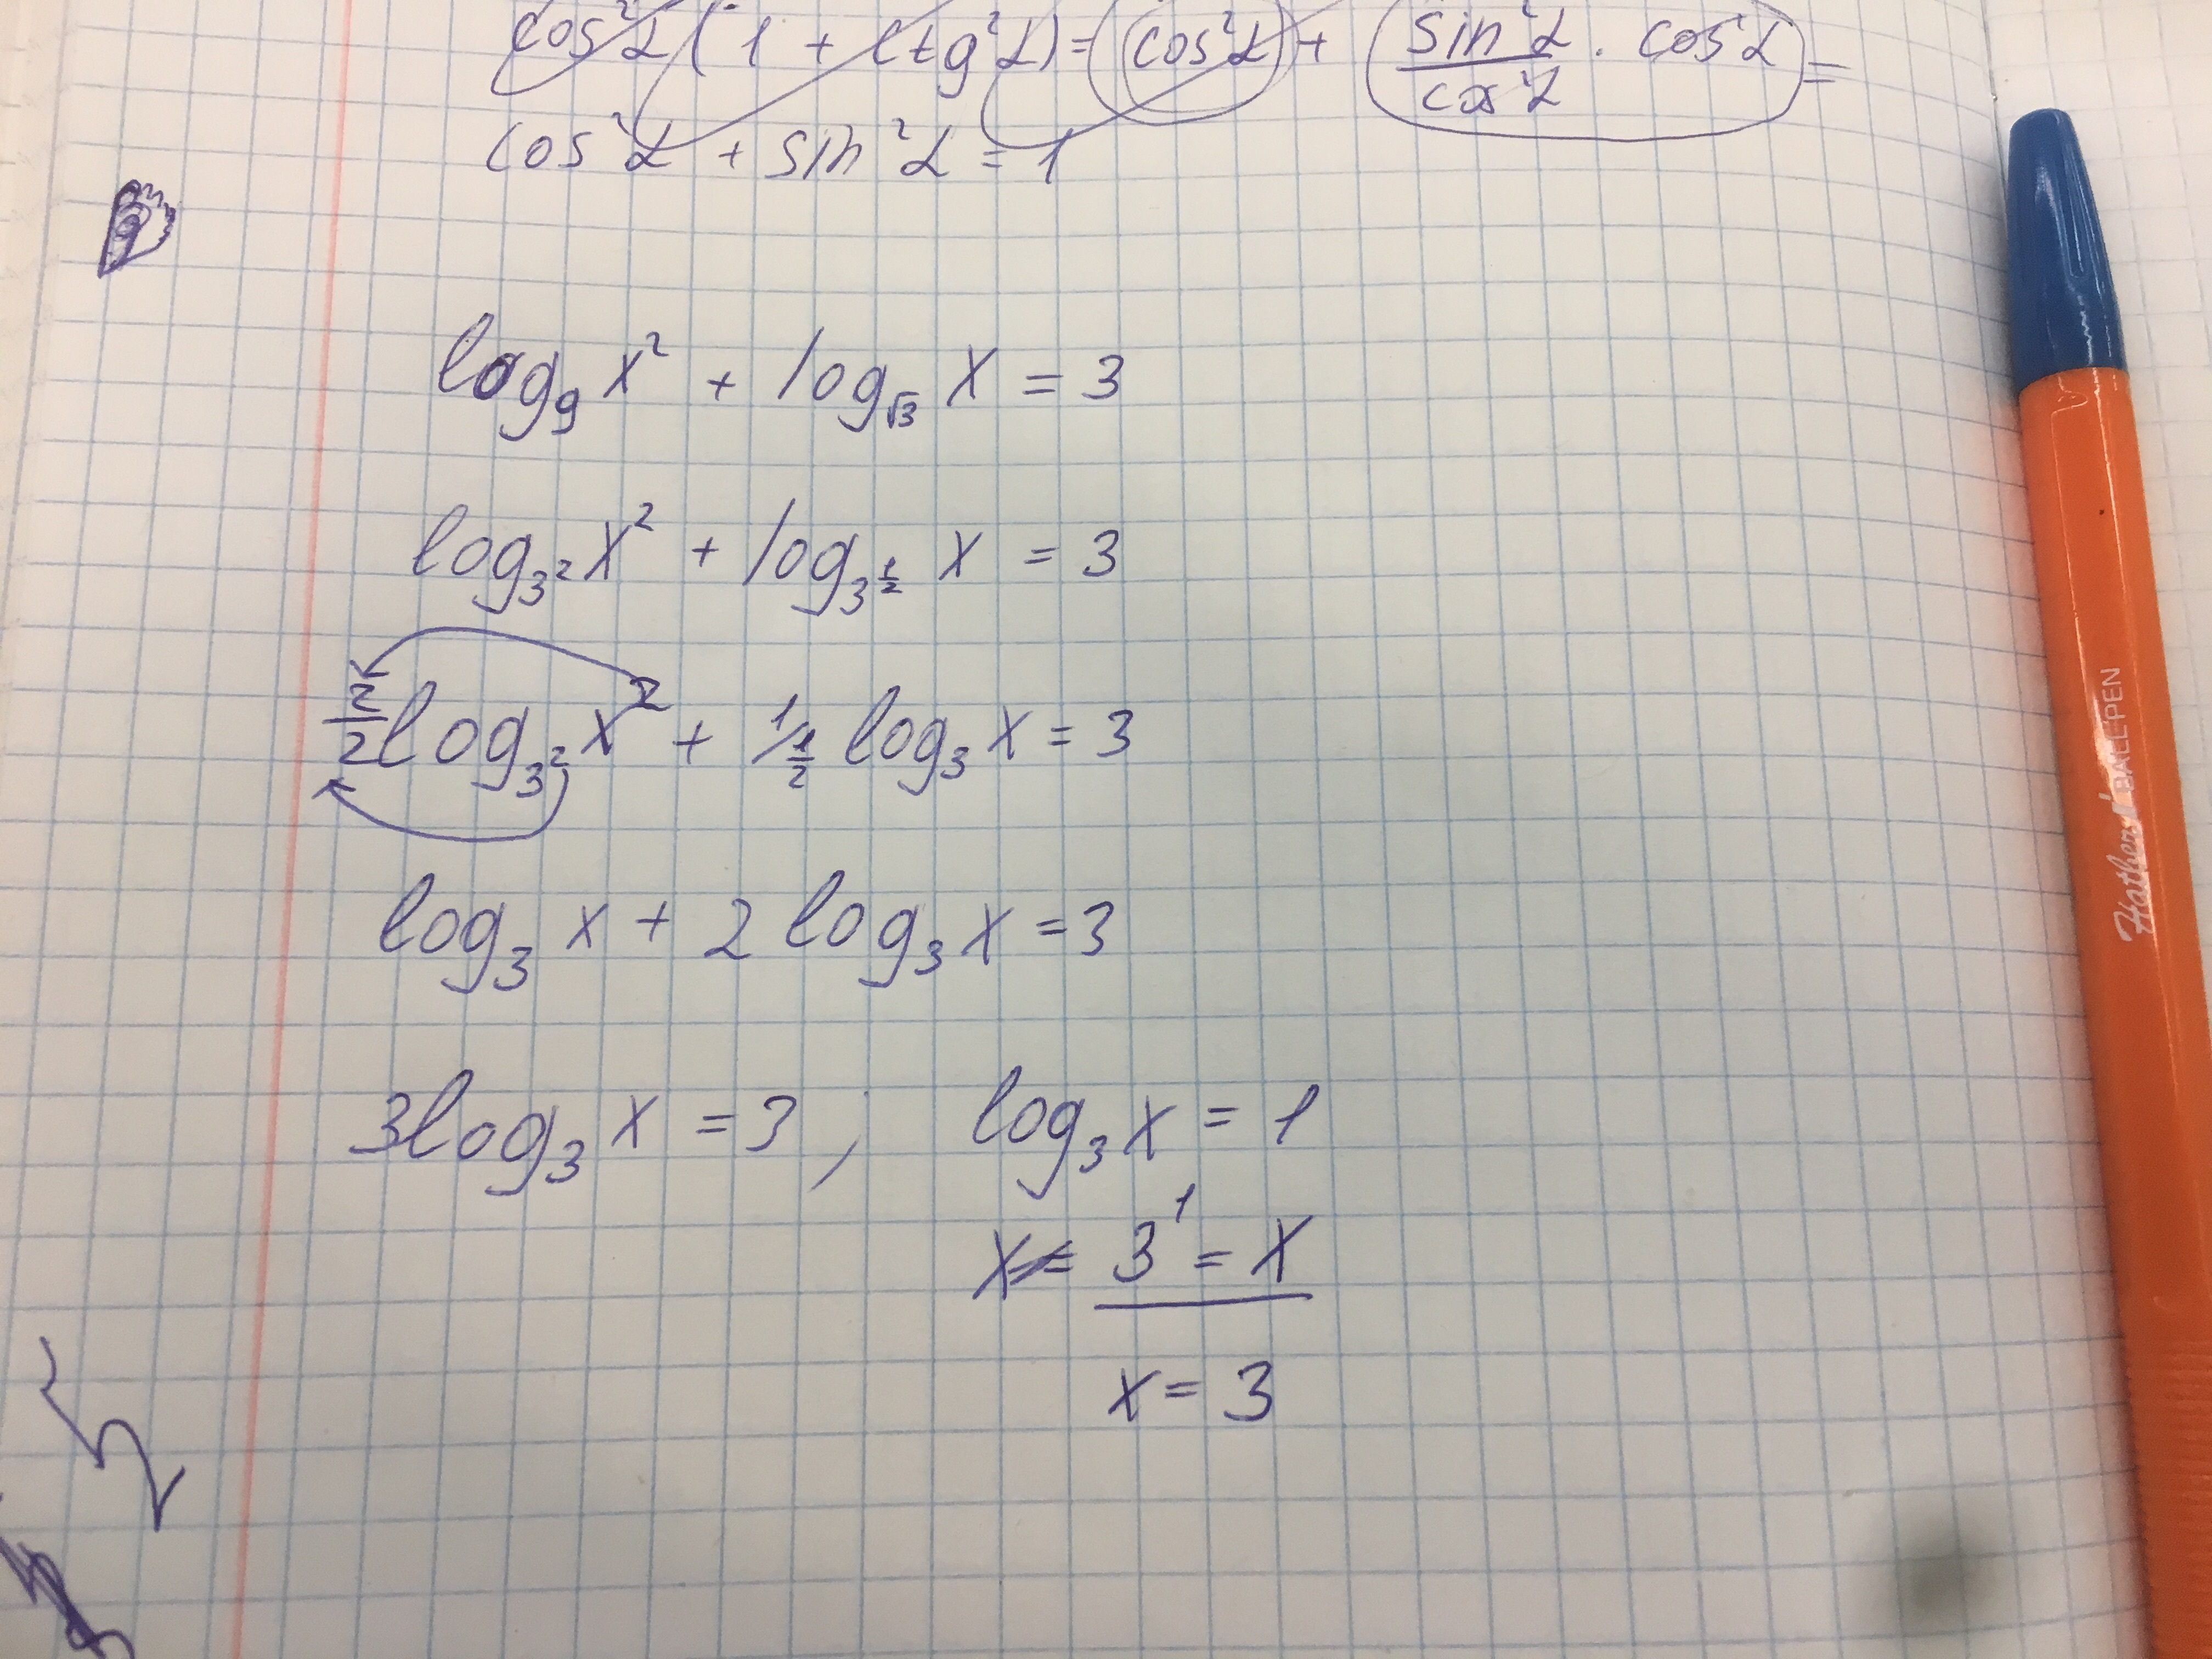 cos²α(1 + tg²α) = cos²α + sin²α/cos²α · cos²α =
cos²α + sin²α = 1
log₉ x² + log_√3 x = 3
log_3² x² + log_3^½ x = 3
2/2 log_3² x² + 1/½ log₃ x = 3
log₃ x + 2 log₃ x = 3
3log₃ x = 3 , log₃ x = 1
3¹ = x
x = 3
Hatber BALLPEN